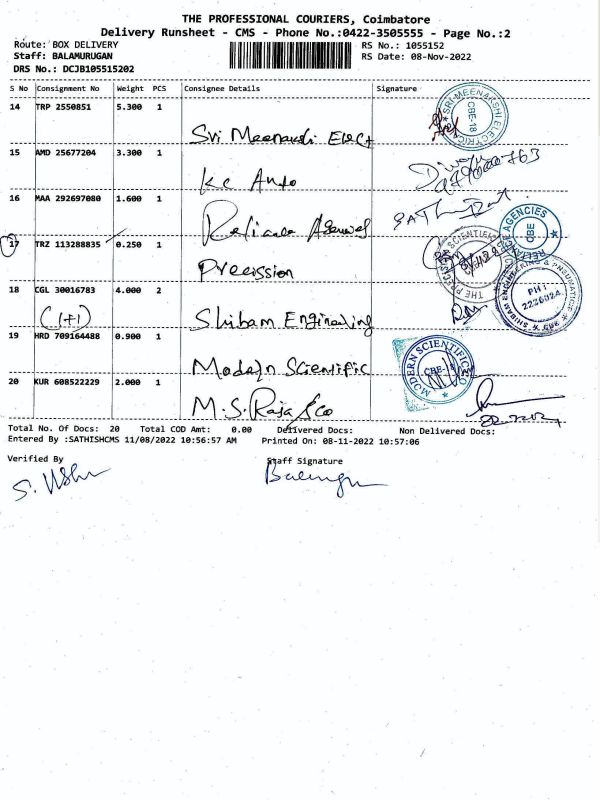 THE PROFESSIONAL COURIERS, Coimbatore
Delivery Runsheet - CMS - Phone No.:0422-3505555 - Page No.:2
Route: BOX DELIVERY
Staff: BALAMURUGAN
DRS No.: DCJB105515202
RS No.: 1055152
RS Date: 08-Nov-2022
S No Consignment No Weight PCS Consignee Details Signature
14 TRP 2550851 5.300 1
Sri Meenakshi Elect
SRI MEENAKSHI ELECTRICAL
CBE-18
15 AMD 25677204 3.300 1
KC Auto
16 MAA 292697080 1.600 1
Reliance Agencies
AGENCIES
CBE
17 TRZ 113288835 0.250 1
Precission
THE PRECISION SCIENTIFIC
18 CGL 30016783 4.000 2
(1+1)
Shibam Engineering
SHIBAM ENGINEERING & PNEUMATICS
PH:
2226024
CBE
19 HRD 709164488 0.900 1
Modern Scientific
MODERN SCIENTIFIC CO
CBE-
20 KUR 608522229 2.000 1
M.S. Raja & Co
Total No. Of Docs: 20 Total COD Amt: 0.00 Delivered Docs: Non Delivered Docs:
Entered By :SATHISHCMS 11/08/2022 10:56:57 AM Printed On: 08-11-2022 10:57:06
Verified By
Staff Signature